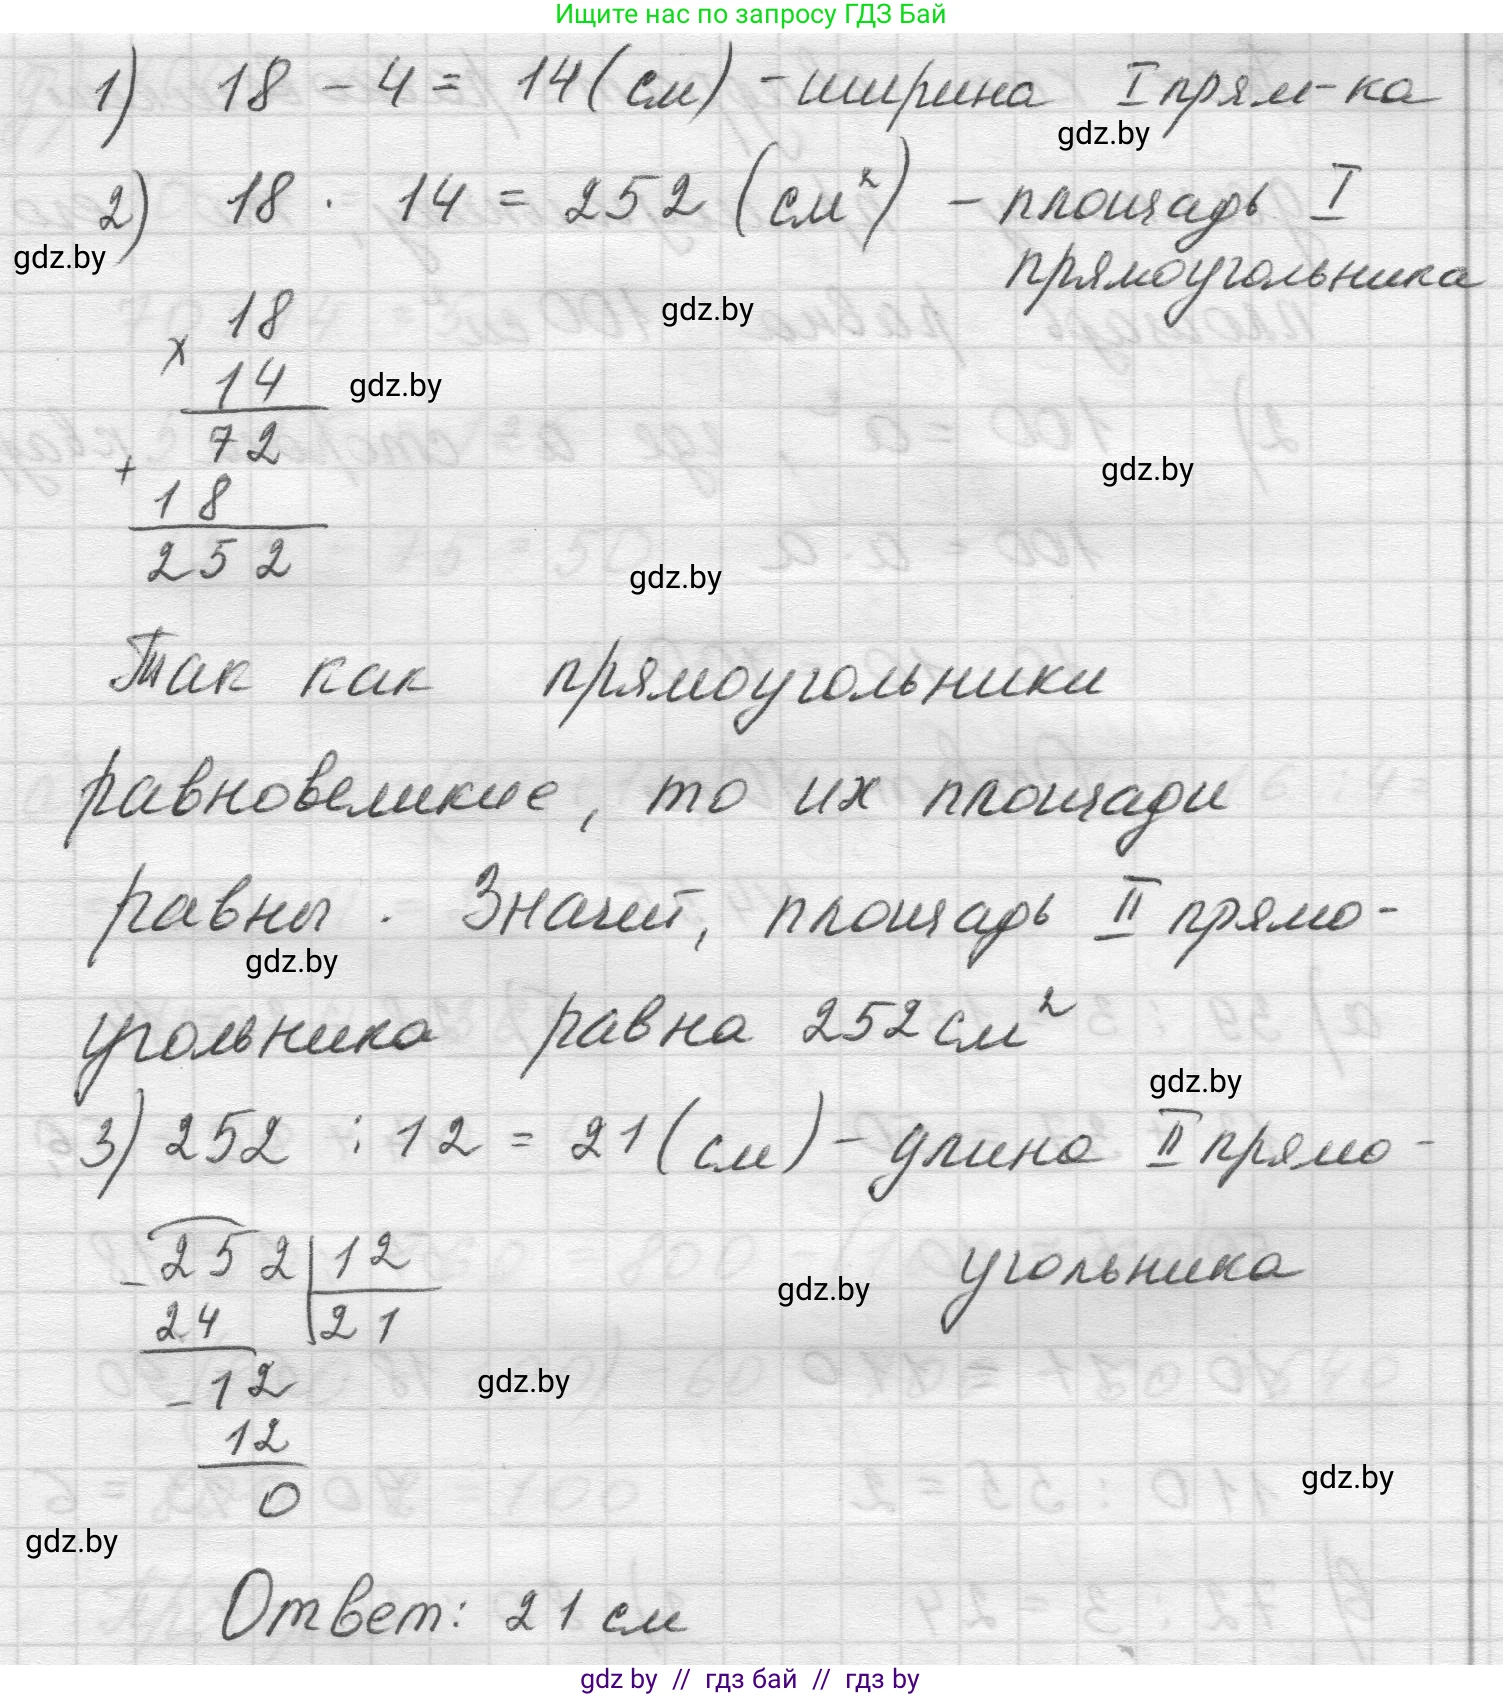 Ищите нас по запросу ГДЗ Бай
1) 18 - 4 = 14 (см) - ширина I прям-ка
gdz.by
2) 18 · 14 = 252 (см²) - площадь I
gdz.by
прямоугольника
gdz.by
18
×
14
gdz.by
72
+
gdz.by
18
252
gdz.by
Так как прямоугольники
равновеликие, то их площади
равны. Значит, площадь II прямо-
gdz.by
угольника равна 252 см²
gdz.by
3) 252 : 12 = 21 (см) - длина II прямо-
угольника
- 252 | 12
gdz.by
24 | 21
- 12
gdz.by
12
gdz.by
0
gdz.by
Ответ: 21 см
gdz by // гдз бай // гдз by